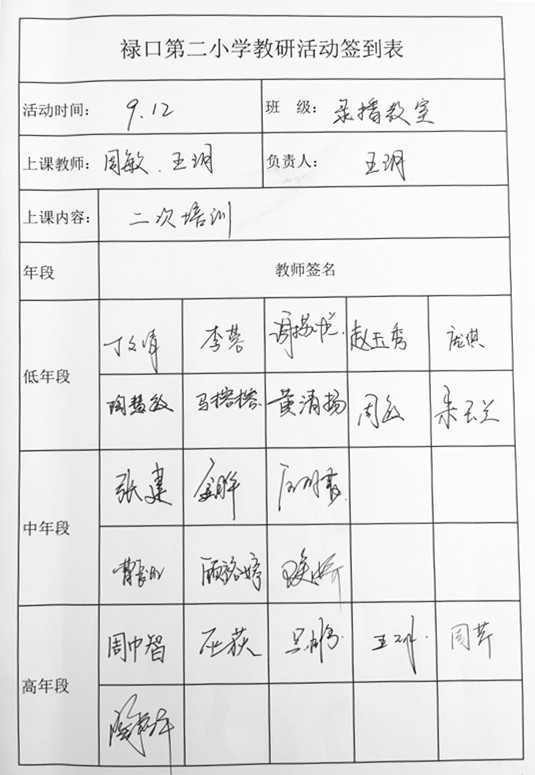 禄口第二小学教研活动签到表
活动时间： 9.12 班 级： 录播教室
上课教师： 周敏、王玥 负责人： 王玥
上课内容： 二次培训
年段 教师签名
丁文清 李蓉 赵玉秀 庞淇
低年段
陶慧敏 马榕榕 黄清扬 周敏 朱玉兰
张建
中年段
顾裕婷
周中智 庄荻 周芹
高年段